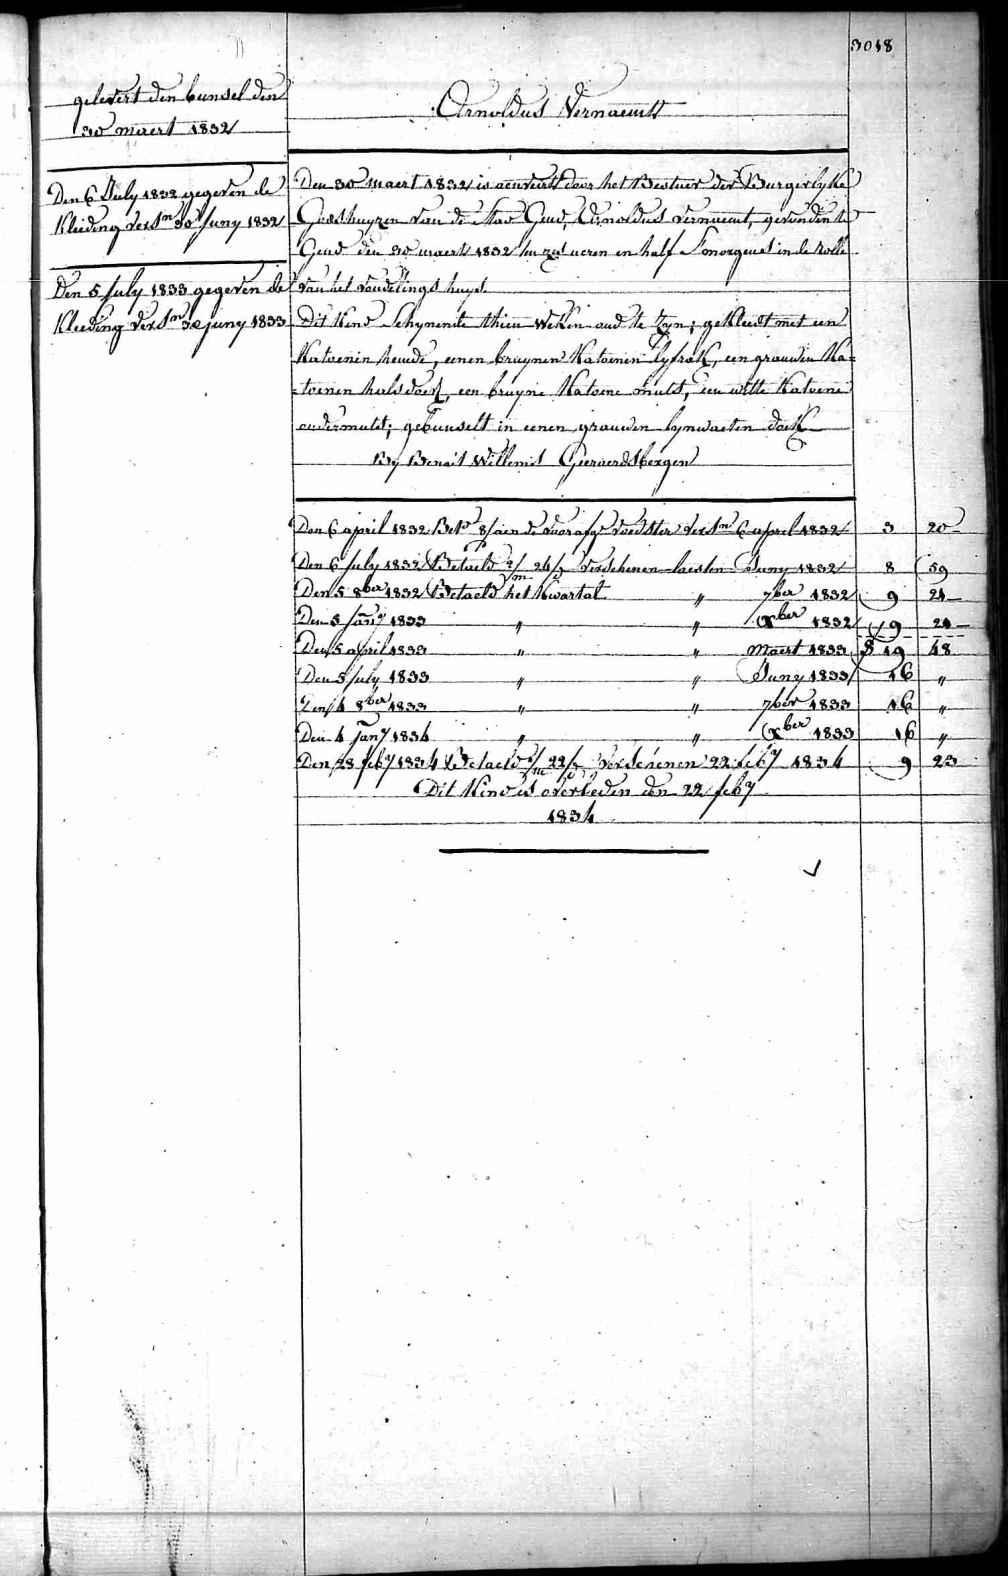 3018
gelevert den bunsel den
30 maert 1832
Arnoldus Vernaeut
Den 6 July 1832 gegeven de
Kleeding versn 30 Juny 1832
Den 5 July 1833 gegeven de
Kleeding versn 30 juny 1833
Den 30 maert 1832 is aenveert door het Bestuer der Burgerlyke
Godshuyzen van de stad Gend, Arnoldus Vernaeut, gevonden te
Gend den 30 maert 1832 ten zes uren en half S'morgens in de rolle
van het vondelings huys.
Dit Kind schynende thien weken oud te zyn; gekleedt met een
Katoenen hemde, eenen bruynen Katoenen lyfrok, een grauwen Ka=
=toenen halsdoek, een bruyne Katoene muts, een witte Katoene
ondermuts; gebunselt in eenen grauwen lynwaeten doek
By Benoit Willems Geeraerdsbergen
Den 6 april 1832 Bet 8/ aen de voorafge voedster versn 6 april 1832 3 20
Den 6 July 1832 Betaeld 2/m 24/ verschenen laesten Juny 1832 8 59
Den 5 8ber 1832 Betaeld het Kwartal " 7ber 1832 9 21
Den 5 Jany 1833 " " Xber 1832 9 21
Den 5 april 1833 " " Maert 1833 19 48
Den 5 July 1833 " " Juny 1833 16 "
Den 4 8ber 1833 " " 7ber 1833 16 "
Den 4 Jany 1834 " " Xber 1833 16 "
Den 28 feby 1834 Betaeld 1/m 22/ verschenen 22 feby 1834 9 23
Dit Kind is overleden den 22 feby
1834